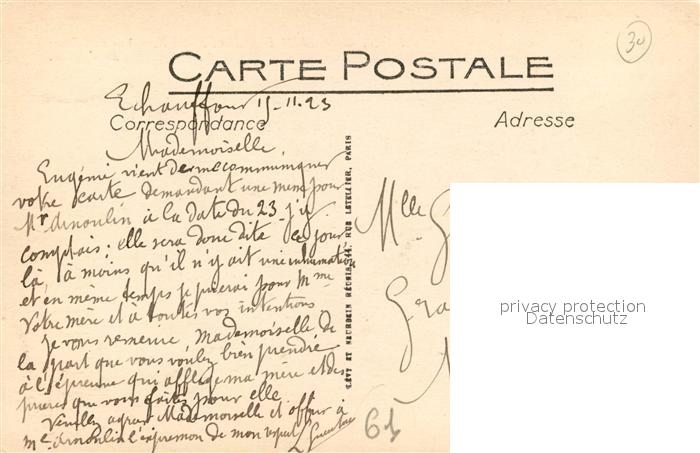 30
CARTE POSTALE
Echauffour 15-11-23
Correspondance
Adresse
Mademoiselle,
Eugénie vient de me communiquer
votre carte demandant une messe pour
Mr Arnoulin à la date du 23 - j'y
comptais; elle sera donc dite ce jour
là, à moins qu'il n'y ait une inhumation
et en même temps je prierai pour Mme
Votre mère et à toutes vos intentions
Je vous remercie, Mademoiselle de
la part que vous voulez bien prendre
à l'épreuve qui afflige ma mère et des
prières que vous faites pour elle.
Veuillez agréer Mademoiselle et offrir à
Me Arnoulin l'expression de mon respect
LÉVY ET NEURDEIN RÉUNIS, 44, RUE LETELLIER, PARIS
Mlle
61
privacy protection
Datenschutz